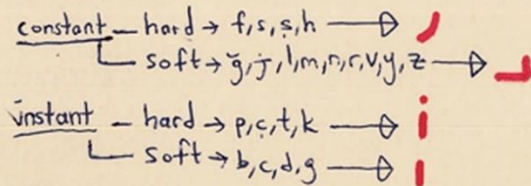 constant — hard → f, s, ş, h →
soft → ğ, j, l, m, n, r, v, y, z →
instant — hard → p, ç, t, k →
soft → b, c, d, g →